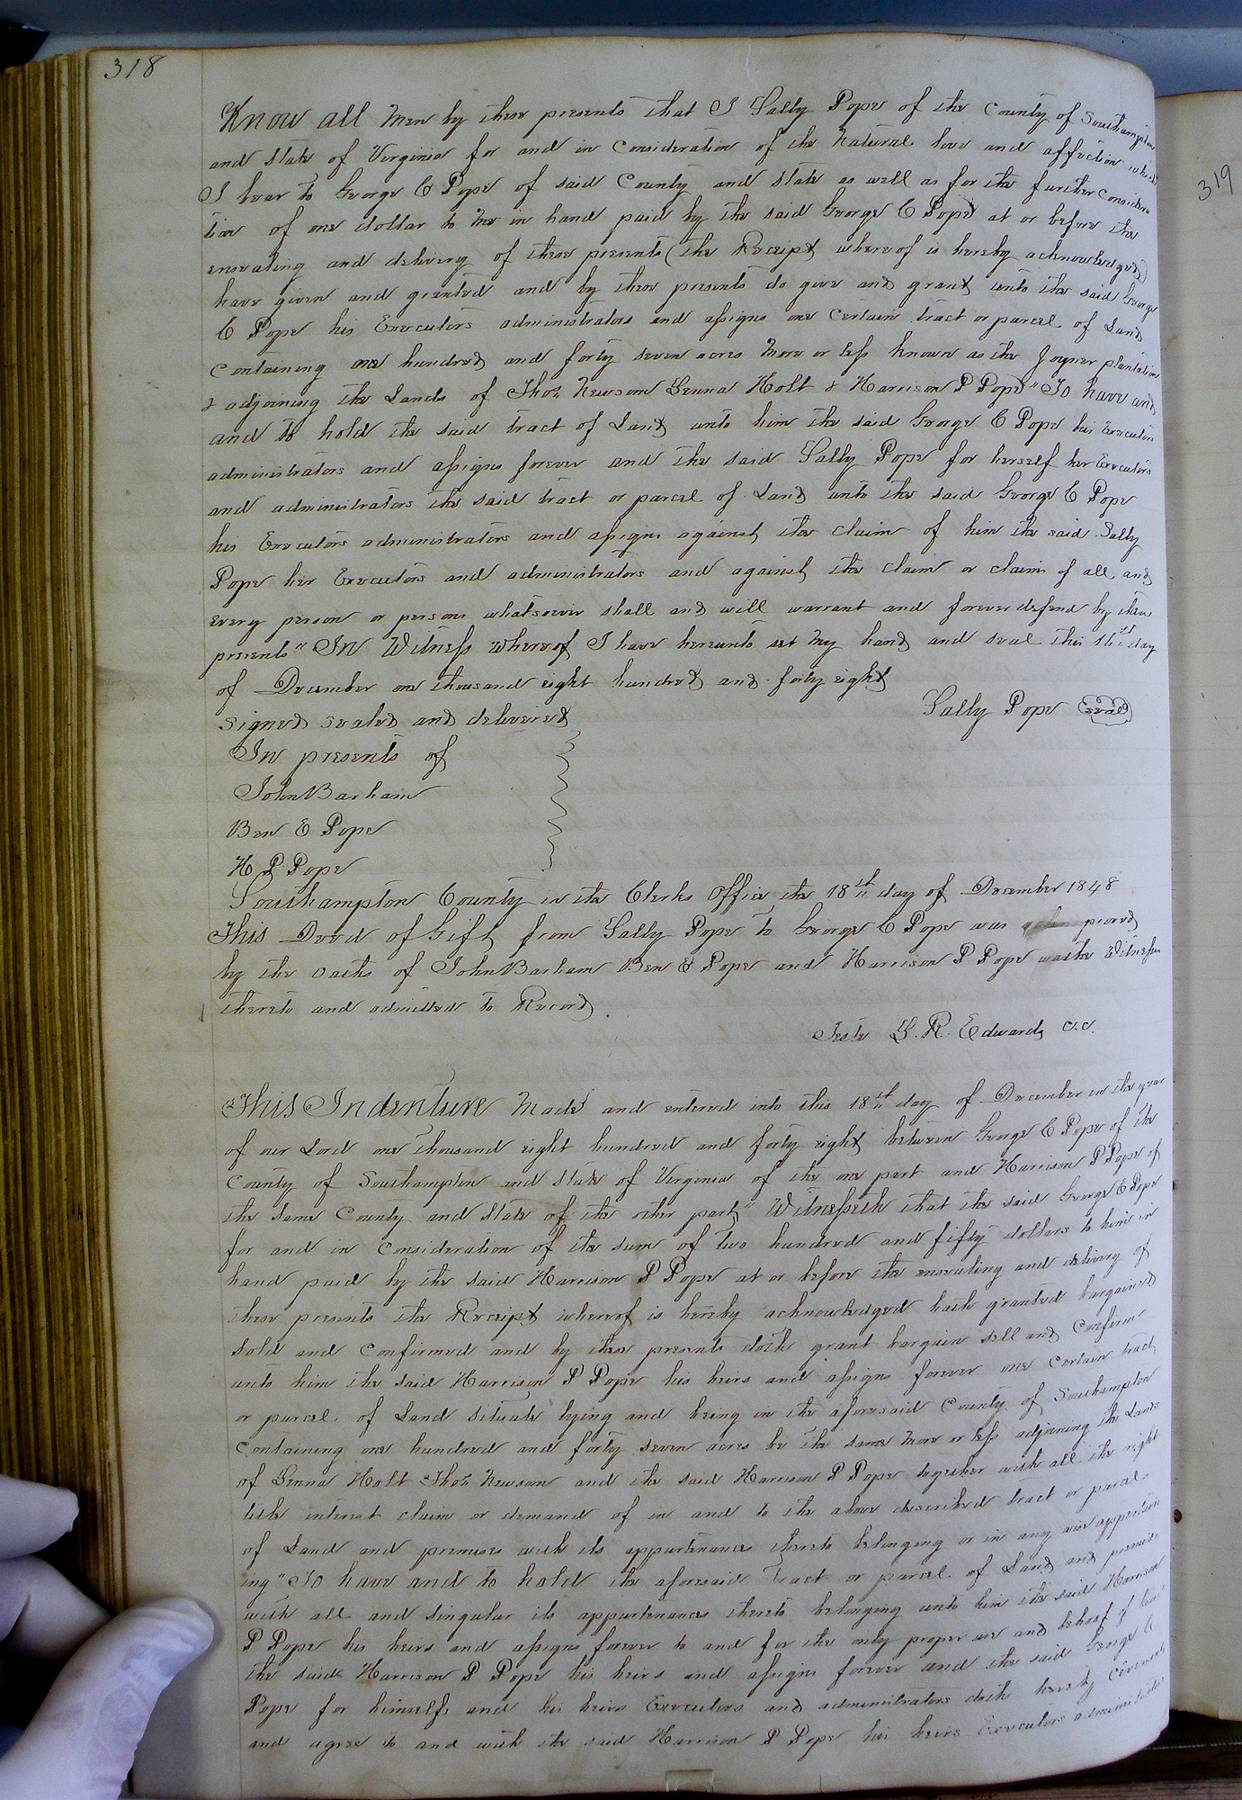 318
319
Know all Men by these presents that I Sally Pope of the County of Southampton
and State of Virginia for and in Consideration of the Natural love and affection which
I bear to George E Pope of said County and State as well as for the further Considera
tion of one dollar to me in hand paid by the said George E Pope at or before the
ensealing and delivery of these presents (the Receipt whereof is hereby acknowledged)
have given and granted and by these presents do give and grant unto the said George
E Pope his Executors administrators and assigns one Certain tract or parcel of Land
Containing one hundred and forty seven acres More or less known as the Joyner plantation
& adjoining the Lands of Thos Newsom Genna Holt & Harrison P Pope" To have and
and to hold the said tract of Land unto him the said George E Pope his Executors
administrators and assigns forever and the said Sally Pope for herself her Executors
and administrators the said tract or parcel of Land unto the said George E Pope
his Executors administrators and assigns against the claim of him the said Sally
Pope her Executors and administrators and against the claim or claims of all and
every person or persons whatsoever shall and will warrant and forever defend by these
presents" In Witness whereof I have hereunto set my hand and seal this day
of December one thousand eight hundred and forty eight
Sally Pope (seal)
signed sealed and delivered
In presents of
John Barham
Ben E Pope
H P Pope
Southampton County in the Clerks Office the 18th day of December 1848
This Deed of Gift from Sally Pope to George E Pope was proved
by the oaths of John Barham Ben E Pope and Harrison P Pope the Witnesses
thereto and admitted to Record.
Teste L. R. Edwards c.c.
This Indenture Made and entered into this 18th day of December in the year
of our Lord one thousand eight hundred and forty eight between George E Pope of the
County of Southampton and State of Virginia of the one part and Harrison P Pope of
the same County and State of the other part" Witnesseth that the said George E Pope
for and in Consideration of the sum of two hundred and fifty dollars to him in
hand paid by the said Harrison P Pope at or before the ensealing and delivery of
these presents the Receipt whereof is hereby acknowledged hath granted bargained
sold and Confirmed and by these presents doth grant bargain sell and Confirm
unto him the said Harrison P Pope his heirs and assigns forever one Certain tract
or parcel of Land situate lying and being in the aforesaid County of Southampton
Containing one hundred and forty seven acres be the same More or less adjoining the Lands
of Genna Holt Thos Newsom and the said Harrison P Pope together with all the right
title interest claim or demand of in and to the above described tract or parcel
of Land and premises with its appurtenances thereto belonging or in any wise appertain
ing" To have and to hold the aforesaid Tract or parcel of Land and premises
with all and singular its appurtenances thereto belonging unto him the said Harrison
P Pope his heirs and assigns forever to and for the only proper use and behoof of him
the said Harrison P Pope his heirs and assigns forever and the said George E
Pope for himself and his heirs Executors and administrators doth hereby Covenant
and agree to and with the said Harrison P Pope his heirs Executors